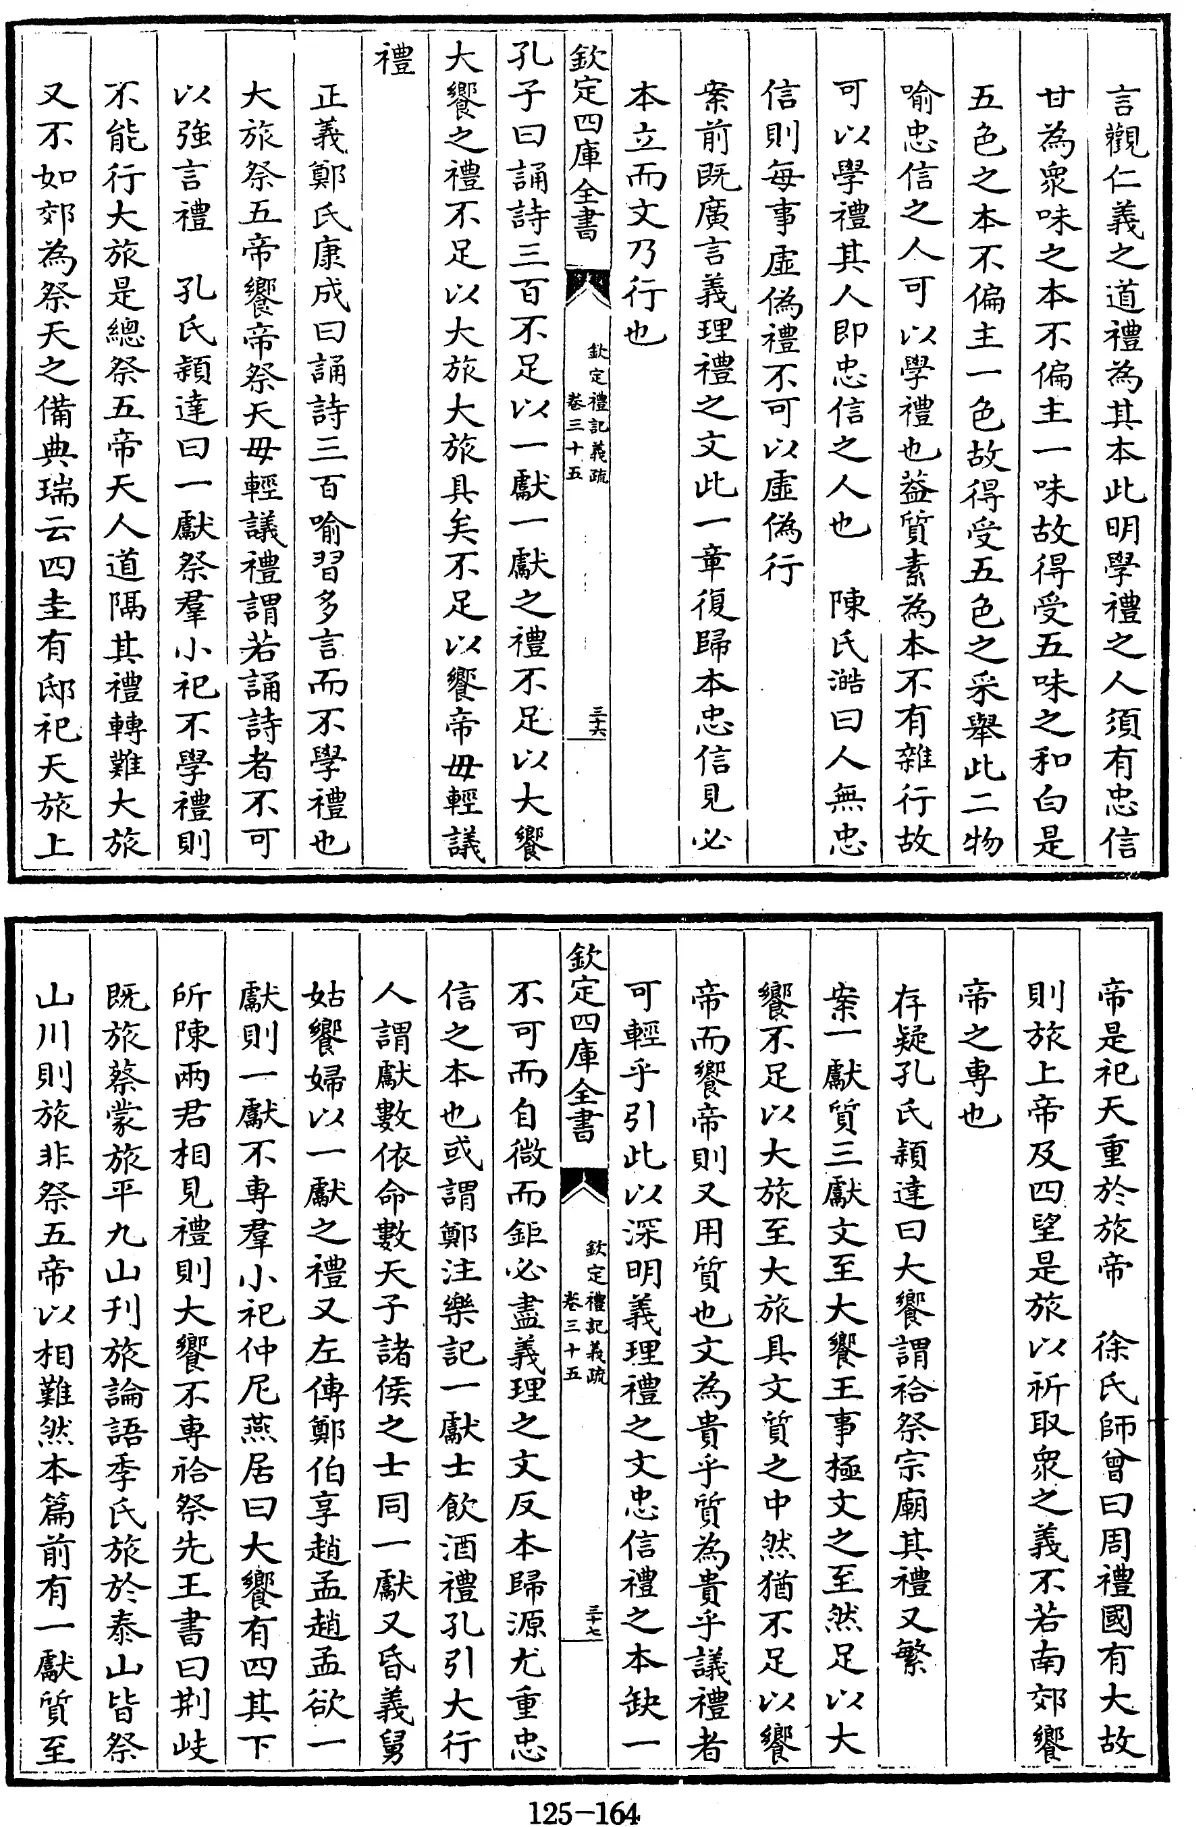 言觀仁義之道禮為其本此明學禮之人須有忠信
甘為衆味之本不偏主一味故得受五味之和白是
五色之本不偏主一色故得受五色之采舉此二物
喻忠信之人可以學禮也葢質素為本不有雜行故
可以學禮其人即忠信之人也　陳氏澔曰人無忠
信則每事虛偽禮不可以虛偽行
案前既廣言義理禮之文此一章復歸本忠信見必
本立而文乃行也
欽定四庫全書
欽定禮記義疏
卷三十五
三十六
孔子曰誦詩三百不足以一獻一獻之禮不足以大饗
大饗之禮不足以大旅大旅具矣不足以饗帝毋輕議
禮
正義鄭氏康成曰誦詩三百喻習多言而不學禮也
大旅祭五帝饗帝祭天毋輕議禮謂若誦詩者不可
以強言禮　孔氏穎達曰一獻祭羣小祀不學禮則
不能行大旅是總祭五帝天人道隔其禮轉難大旅
又不如郊為祭天之備典瑞云四圭有邸祀天旅上
帝是祀天重於旅帝　徐氏師曾曰周禮國有大故
則旅上帝及四望是旅以祈取衆之義不若南郊饗
帝之專也
存疑孔氏穎達曰大饗謂祫祭宗廟其禮又繁
案一獻質三獻文至大饗王事極文之至然足以大
饗不足以大旅至大旅具文質之中然猶不足以饗
帝而饗帝則又用質也文為貴乎質為貴乎議禮者
可輕乎引此以深明義理禮之文忠信禮之本缺一
欽定四庫全書
欽定禮記義疏
卷三十五
三十七
不可而自微而鉅必盡義理之文反本歸源尤重忠
信之本也或謂鄭注樂記一獻士飲酒禮孔引大行
人謂獻數依命數天子諸侯之士同一獻又昏義舅
姑饗婦以一獻之禮又左傳鄭伯享趙孟趙孟欲一
獻則一獻不專羣小祀仲尼燕居曰大饗有四其下
所陳兩君相見禮則大饗不專祫祭先王書曰荆岐
既旅蔡蒙旅平九山刋旅論語季氏旅於泰山皆祭
山川則旅非祭五帝以相難然本篇前有一獻質至
125-164